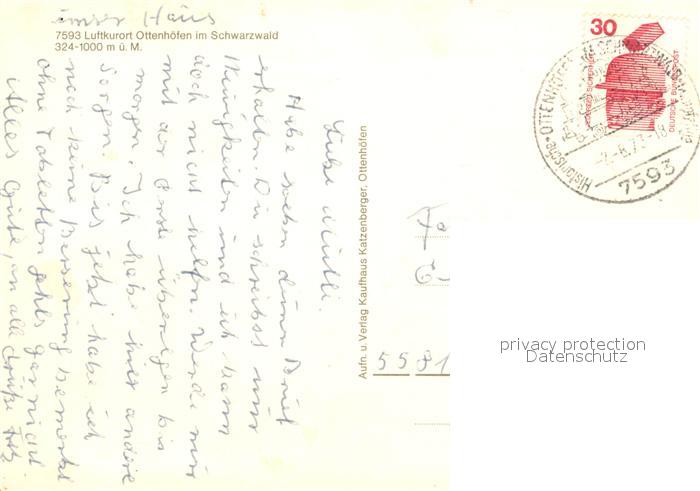 unser Haus
7593 Luftkurort Ottenhöfen im Schwarzwald
324-1000 m ü. M.
Liebe Mutti.
Habe soeben deinen Brief
erhalten. Du schreibst nur
Neuigkeiten und ich kann
doch nicht helfen. Werde mir
mit der Ernte überlegen bis
morgen. Ich habe hier andere
Sorgen. Bis jetzt habe ich
noch keine Besserung bemerkt
ohne Tabletten gehts gar nicht
Alles Gute, an alle Grüße
Aufn. u. Verlag Kaufhaus Katzenberger, Ottenhöfen
5581
30
DEUTSCHE BUNDESPOST
Historische
OTTENHÖFEN
7593
privacy protection
Datenschutz